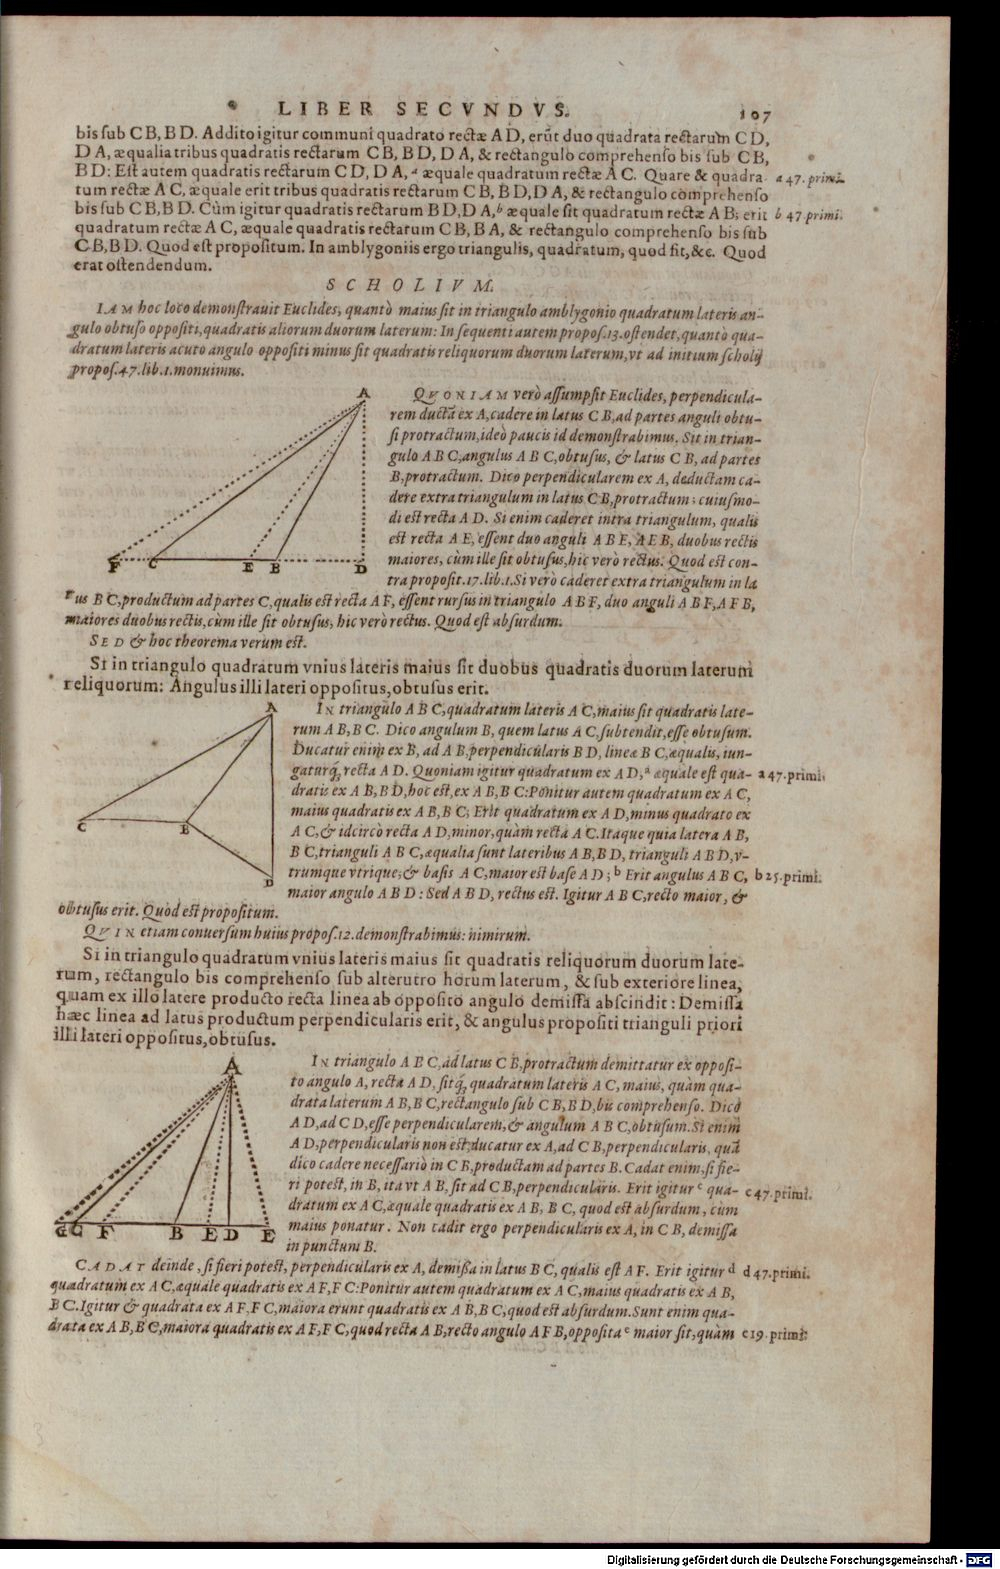 LIBER SECVNDVS. 107
bis ſub C B, B D. Addito igitur communi quadrato rectæ A D, erũt duo quadrata rectarum C D,
D A, æqualia tribus quadratis rectarum C B, B D, D A, & rectangulo comprehenſo bis ſub C B,
B D: Eſt autem quadratis rectarum C D, D A, ᵃ æquale quadratum rectæ A C. Quare & quadra- a 47. primi.
tum rectæ A C, æquale erit tribus quadratis rectarum C B, B D, D A, & rectangulo comprehenſo
bis ſub C B, B D. Cùm igitur quadratis rectarum B D, D A, ᵇ æquale ſit quadratum rectæ A B; erit b 47. primi.
quadratum rectæ A C, æquale quadratis rectarum C B, B A, & rectangulo comprehenſo bis ſub
C B, B D. Quod eſt propoſitum. In amblygoniis ergo triangulis, quadratum, quod fit, &c. Quod
erat oſtendendum.
SCHOLIVM.
IAM hoc loco demonſtrauit Euclides, quantò maius ſit in triangulo amblygonio quadratum lateris an-
gulo obtuſo oppoſiti, quadratis aliorum duorum laterum: In ſequenti autem propoſ. 13. oſtendet, quantò qua-
dratum lateris acuto angulo oppoſiti minus ſit quadratis reliquorum duorum laterum, vt ad initium ſcholij
propoſ. 47. lib. 1. monuimus.
A
F C E B D
QVONIAM verò aſſumpſit Euclides, perpendicula-
rem ductã ex A, cadere in latus C B, ad partes anguli obtu-
ſi protractum, ideò paucis id demonſtrabimus. Sit in trian-
gulo A B C, angulus A B C, obtuſus, & latus C B, ad partes
B, protractum. Dico perpendicularem ex A, deductam ca-
dere extra triangulum in latus C B, protractum; cuiuſmo-
di eſt recta A D. Si enim caderet intra triangulum, qualis
eſt recta A E, eſſent duo anguli A B E, A E B, duobus rectis
maiores, cùm ille ſit obtuſus, hic verò rectus. Quod eſt con-
tra propoſit. 17. lib. 1. Si verò caderet extra triangulum in la
tus B C, productum ad partes C, qualis eſt recta A F, eſſent rurſus in triangulo A B F, duo anguli A B F, A F B,
maiores duobus rectis, cùm ille ſit obtuſus, hic verò rectus. Quod eſt abſurdum.
SED & hoc theorema verum eſt.
Si in triangulo quadratum vnius lateris maius ſit duobus quadratis duorum laterum
reliquorum: Angulus illi lateri oppoſitus, obtuſus erit.
A
C B
D
IN triangulo A B C, quadratum lateris A C, maius ſit quadratis late-
rum A B, B C. Dico angulum B, quem latus A C, ſubtendit, eſſe obtuſum.
Ducatur enim ex B, ad A B, perpendicularis B D, lineæ B C, æqualis, iun-
gaturq́; recta A D. Quoniam igitur quadratum ex A D, ᵃ æquale eſt qua- a 47. primi.
dratis ex A B, B D, hoc eſt, ex A B, B C: Ponitur autem quadratum ex A C,
maius quadratis ex A B, B C; Erit quadratum ex A D, minus quadrato ex
A C, & idcircò recta A D, minor, quàm recta A C. Itaque quia latera A B,
B C, trianguli A B C, æqualia ſunt lateribus A B, B D, trianguli A B D, v-
trumque vtrique; & baſis A C, maior eſt baſe A D; ᵇ Erit angulus A B C, b 25. primi.
maior angulo A B D: Sed A B D, rectus eſt. Igitur A B C, recto maior, &
obtuſus erit. Quod eſt propoſitum.
QVIN etiam conuerſum huius propoſ. 12. demonſtrabimus: nimirum.
Si in triangulo quadratum vnius lateris maius ſit quadratis reliquorum duorum late-
rum, rectangulo bis comprehenſo ſub alterutro horum laterum, & ſub exteriore linea,
quam ex illo latere producto recta linea ab oppoſito angulo demiſſa abſcindit: Demiſſa
hæc linea ad latus productum perpendicularis erit, & angulus propoſiti trianguli priori
illi lateri oppoſitus, obtuſus.
A
G C F B E D E
IN triangulo A B C, ad latus C B, protractum demittatur ex oppoſi-
to angulo A, recta A D, ſitq́; quadratum lateris A C, maius, quàm qua-
drata laterum A B, B C, rectangulo ſub C B, B D, bis comprehenſo. Dico
A D, ad C D, eſſe perpendicularem, & angulum A B C, obtuſum. Si enim
A D, perpendicularis non eſt, ducatur ex A, ad C B, perpendicularis, quã
dico cadere neceſſariò in C B, productam ad partes B. Cadat enim, ſi fie-
ri poteſt, in B, ita vt A B, ſit ad C B, perpendicularis. Erit igitur ᶜ qua- c 47. primi.
dratum ex A C, æquale quadratis ex A B, B C, quod eſt abſurdum, cùm
maius ponatur. Non cadit ergo perpendicularis ex A, in C B, demiſſa
in punctum B.
CADAT deinde, ſi fieri poteſt, perpendicularis ex A, demiſſa in latus B C, qualis eſt A F. Erit igitur ᵈ d 47. primi.
quadratum ex A C, æquale quadratis ex A F, F C: Ponitur autem quadratum ex A C, maius quadratis ex A B,
B C. Igitur & quadrata ex A F, F C, maiora erunt quadratis ex A B, B C, quod eſt abſurdum. Sunt enim qua-
drata ex A B, B C, maiora quadratis ex A F, F C, quod recta A B, recto angulo A F B, oppoſita ᵉ maior ſit, quàm e 19. primi.
Digitalisierung gefördert durch die Deutsche Forschungsgemeinschaft - DFG